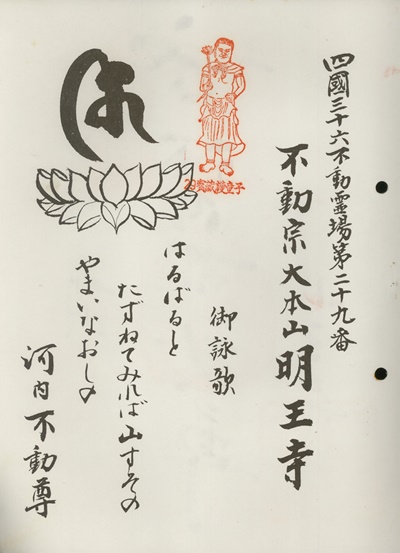 四國三十六不動霊場第二十九番
不動宗大本山明王寺
御詠歌
はるばると
たずねてみれば山すその
やまいなおしの
河内不動尊